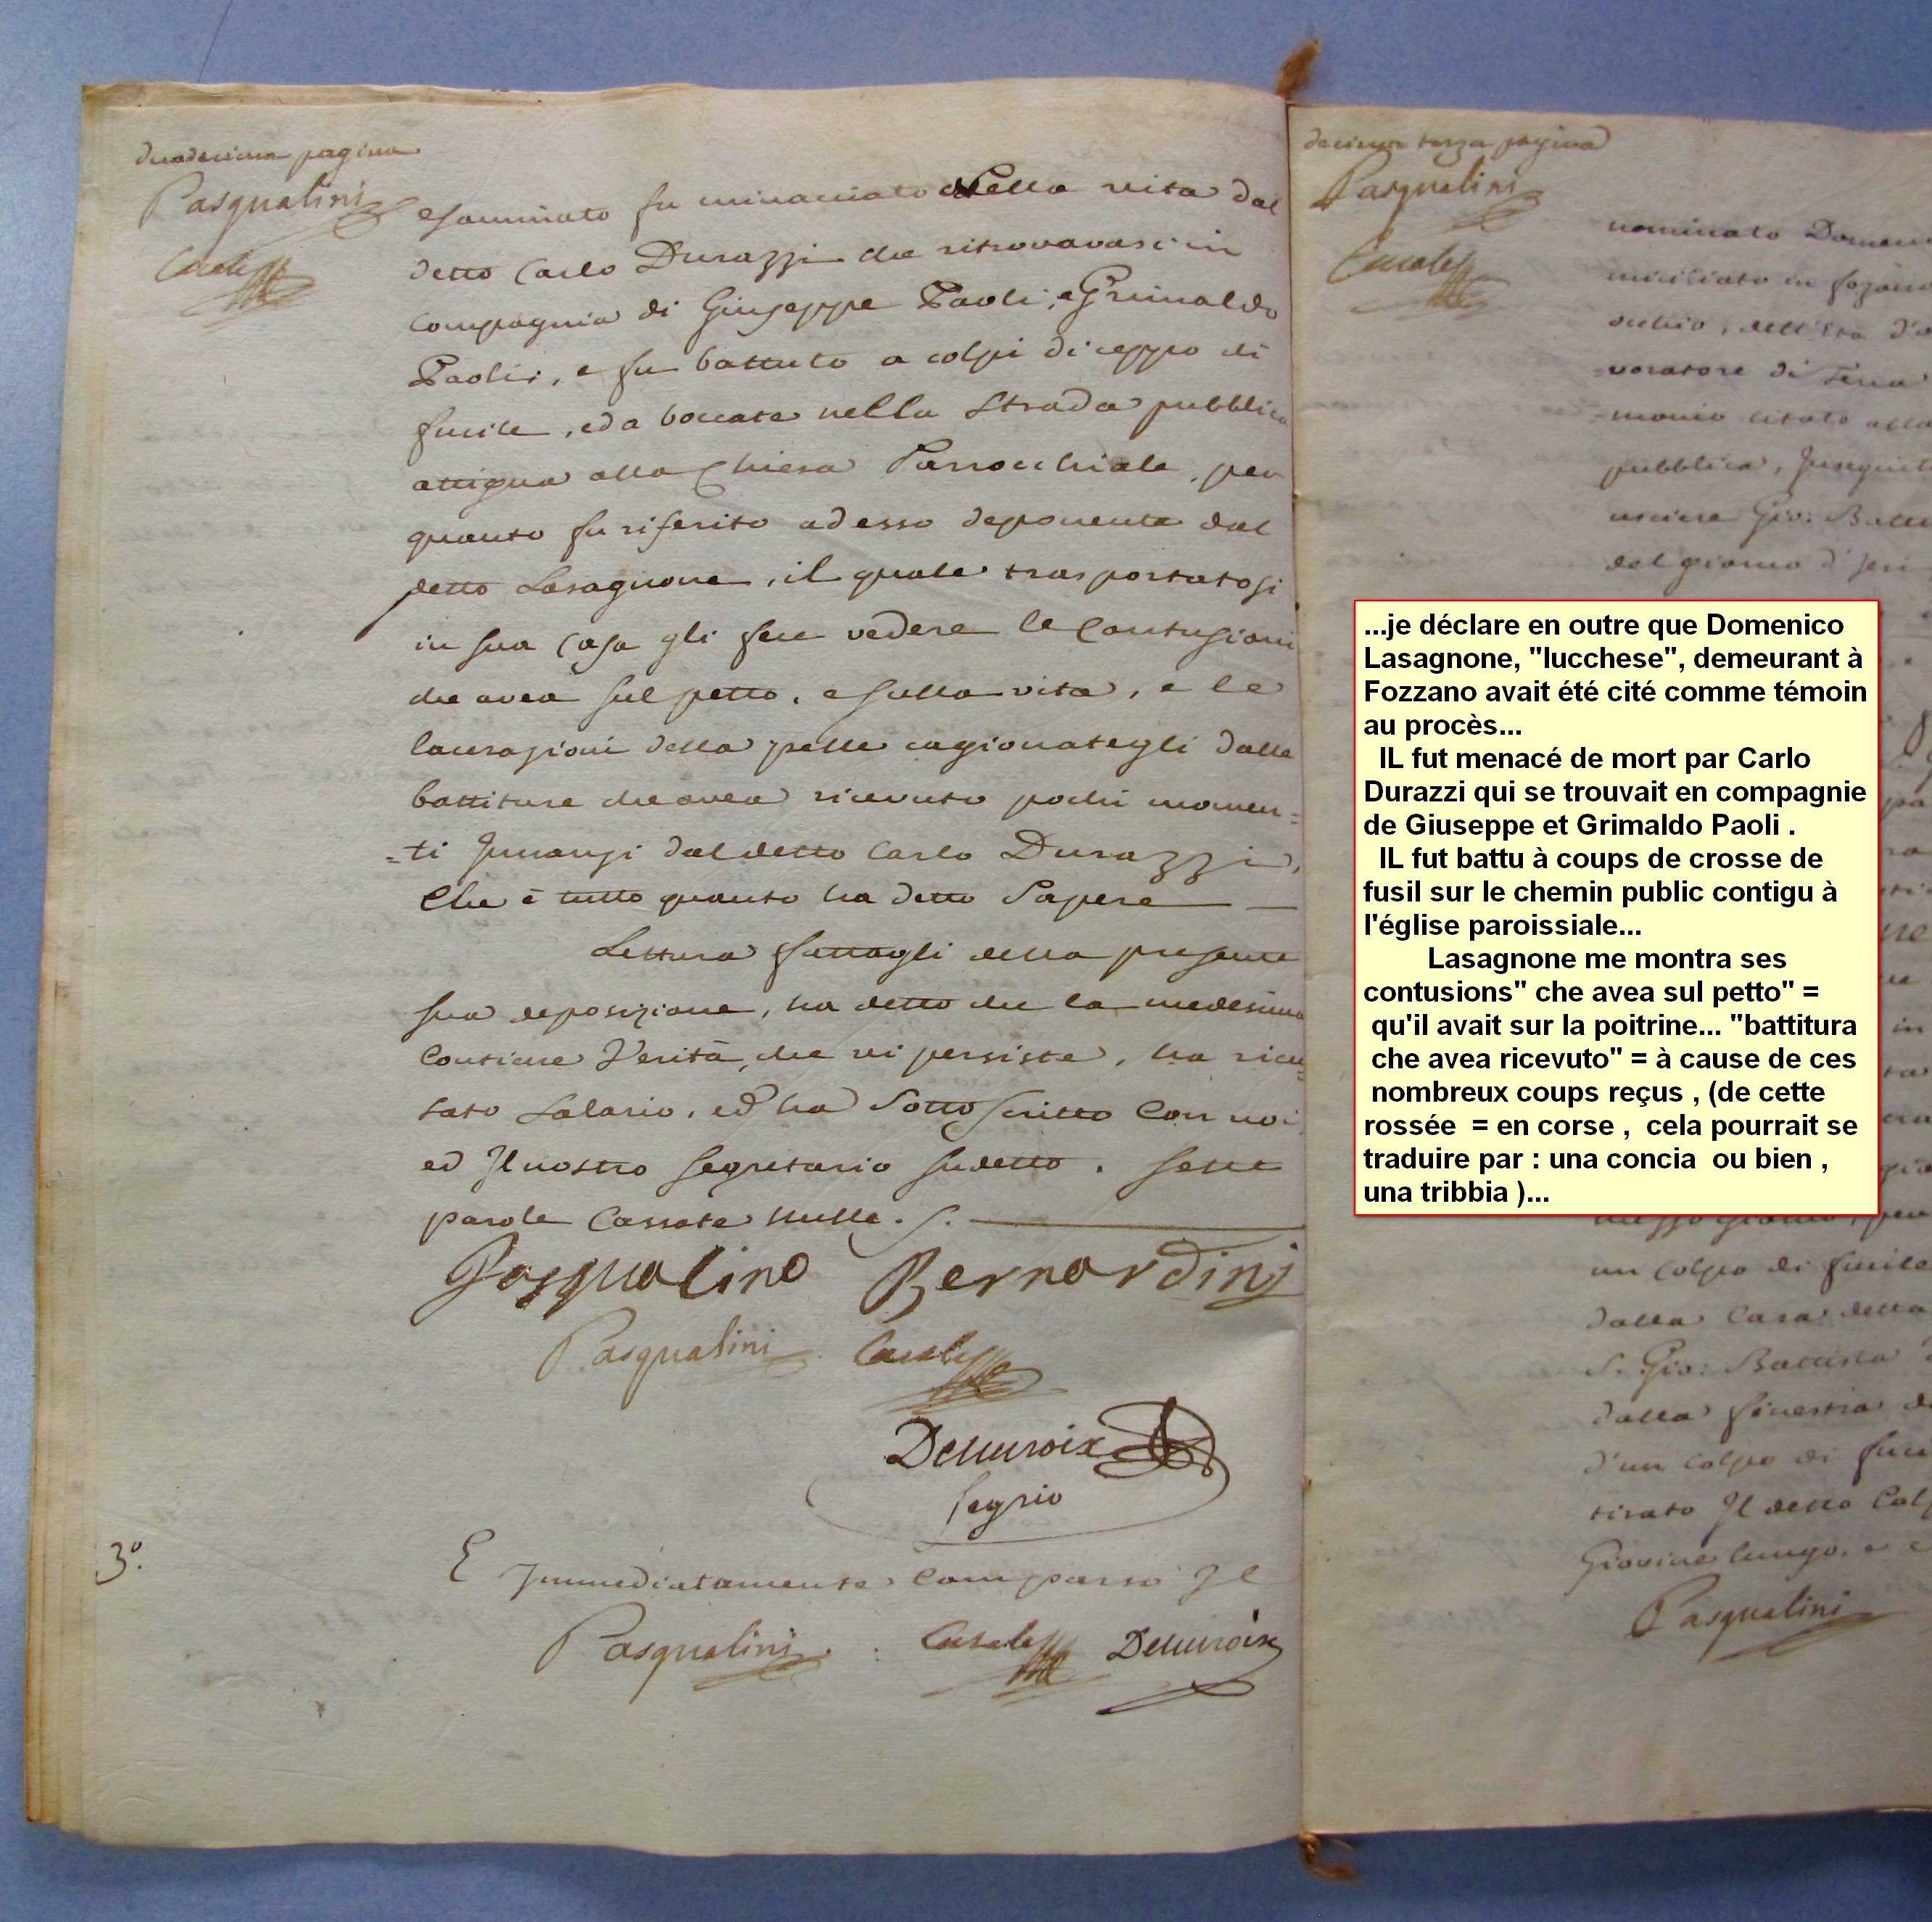 duodecima pagina
Pasqualini
esaminato fu minacciato della vita dal
detto Carlo Durazzi che ritrovavasi in
compagnia di Giuseppe Paoli, e Grimaldo
Paoli, e fu battuto a colpi di ceppo di
fucile, ed a boccate nella strada pubblica
attigua alla Chiesa Parrocchiale, per
quanto fu riferito ad esso deponente dal
detto Lasagnone, il quale trasportatosi
in sua Casa gli fece vedere le Contusioni
che avea sul petto, e sulla vita, e le
lacerazioni della pelle cagionategli dalle
battiture che avea ricevuto pochi momen=
=ti Jnnanzi dal detto Carlo Durazzi,
Che è tutto quanto ha detto Sapere
Lettura fattagli della presente
sua deposizione, ha detto che la medesima
Contiene Verità, che vi persiste, ha ricu=
sato Salario, ed ha Sottoscritto Con noi
ed Jl nostro Segretario sudetto. Sette
parole Cassate nulle. S.
Pasqualino Bernardini
Pasqualini
Segrio
3°.
E Jmmediatamente Comparso Jl
Pasqualini
decima terza pagina
Pasqualini
nominato Domen
miciliato in fozano
dell'Età d'a
=voratore di Terra
=monio citato alla
pubblica, Jnseguit
usciere Gio: Batti
del giorno d'Jeri
...je déclare en outre que Domenico
Lasagnone, "lucchese", demeurant à
Fozzano avait été cité comme témoin
au procès...
IL fut menacé de mort par Carlo
Durazzi qui se trouvait en compagnie
de Giuseppe et Grimaldo Paoli .
IL fut battu à coups de crosse de
fusil sur le chemin public contigu à
l'église paroissiale...
Lasagnone me montra ses
contusions" che avea sul petto" =
qu'il avait sur la poitrine... "battitura
che avea ricevuto" = à cause de ces
nombreux coups reçus , (de cette
rossée = en corse , cela pourrait se
traduire par : una concia ou bien ,
una tribbia )...
mezzo giorno, per
un colpo di fucile
dalla Casa della
S. Gio: Battista
dalla finestra d
d'un colpo di fuci
tirato Jl detto Col
Giovine lungo, e
Pasqualini